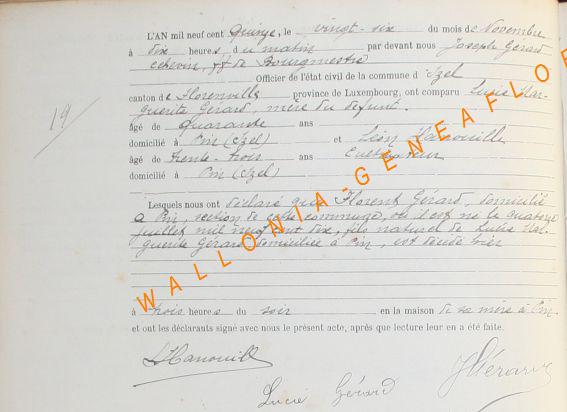 L'AN mil neuf cent Quinze, le vingt-six du mois de Novembre
à dix heures du matin par devant nous Joseph Gérard
echevin, ff de Bourgmestre
Officier de l'état civil de la commune d'Izel
canton de Florenville province de Luxembourg, ont comparu Lucie Mar-
guerite Gérard, mère du défunt.
âgé de quarante ans
domicilié à Pin (Izel) et Léon Hanouille
âgé de trente-trois ans Cultivateur
domicilié à Pin (Izel)
19
Lesquels nous ont déclaré que Florent Gérard, domicilié
à Pin, section de cette commune, où il est né le quatorze
juillet mil neuf cent dix, fils naturel de Lucie Mar-
guerite Gérard domiciliée à Pin, est décédé hier
à trois heures du soir en la maison de sa mère à Pin.
et ont les déclarants signé avec nous le présent acte, après que lecture leur en a été faite.
LHanouille
Lucie Gérard
JGérard
WALLONIA-GENEAFLOR